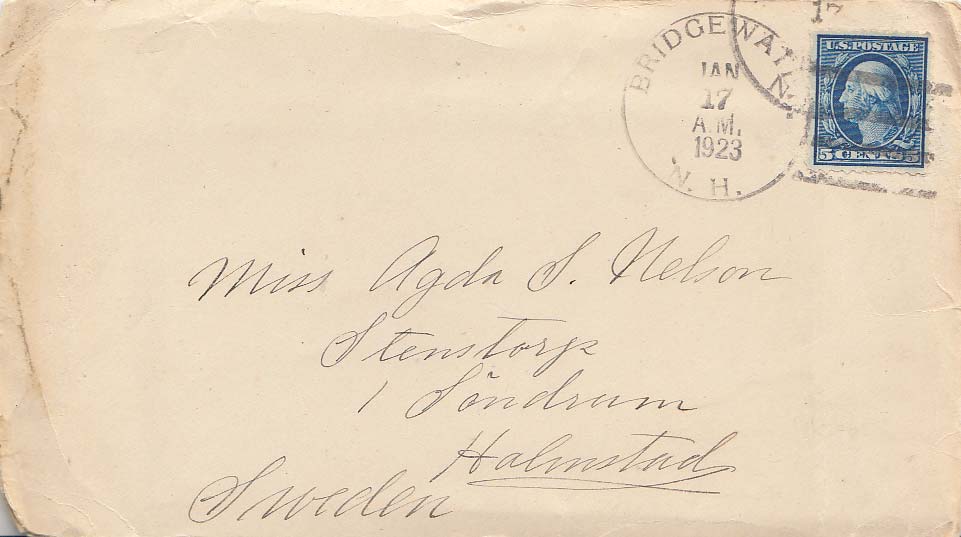 17
U.S. POSTAGE
BRIDGEWAT
N.
JAN
17
A.M.
1923
N. H.
5 CENTS 5
Miss Agda S. Nelson
Stenstorp
1 Söndrum
Halmstad
Sweden